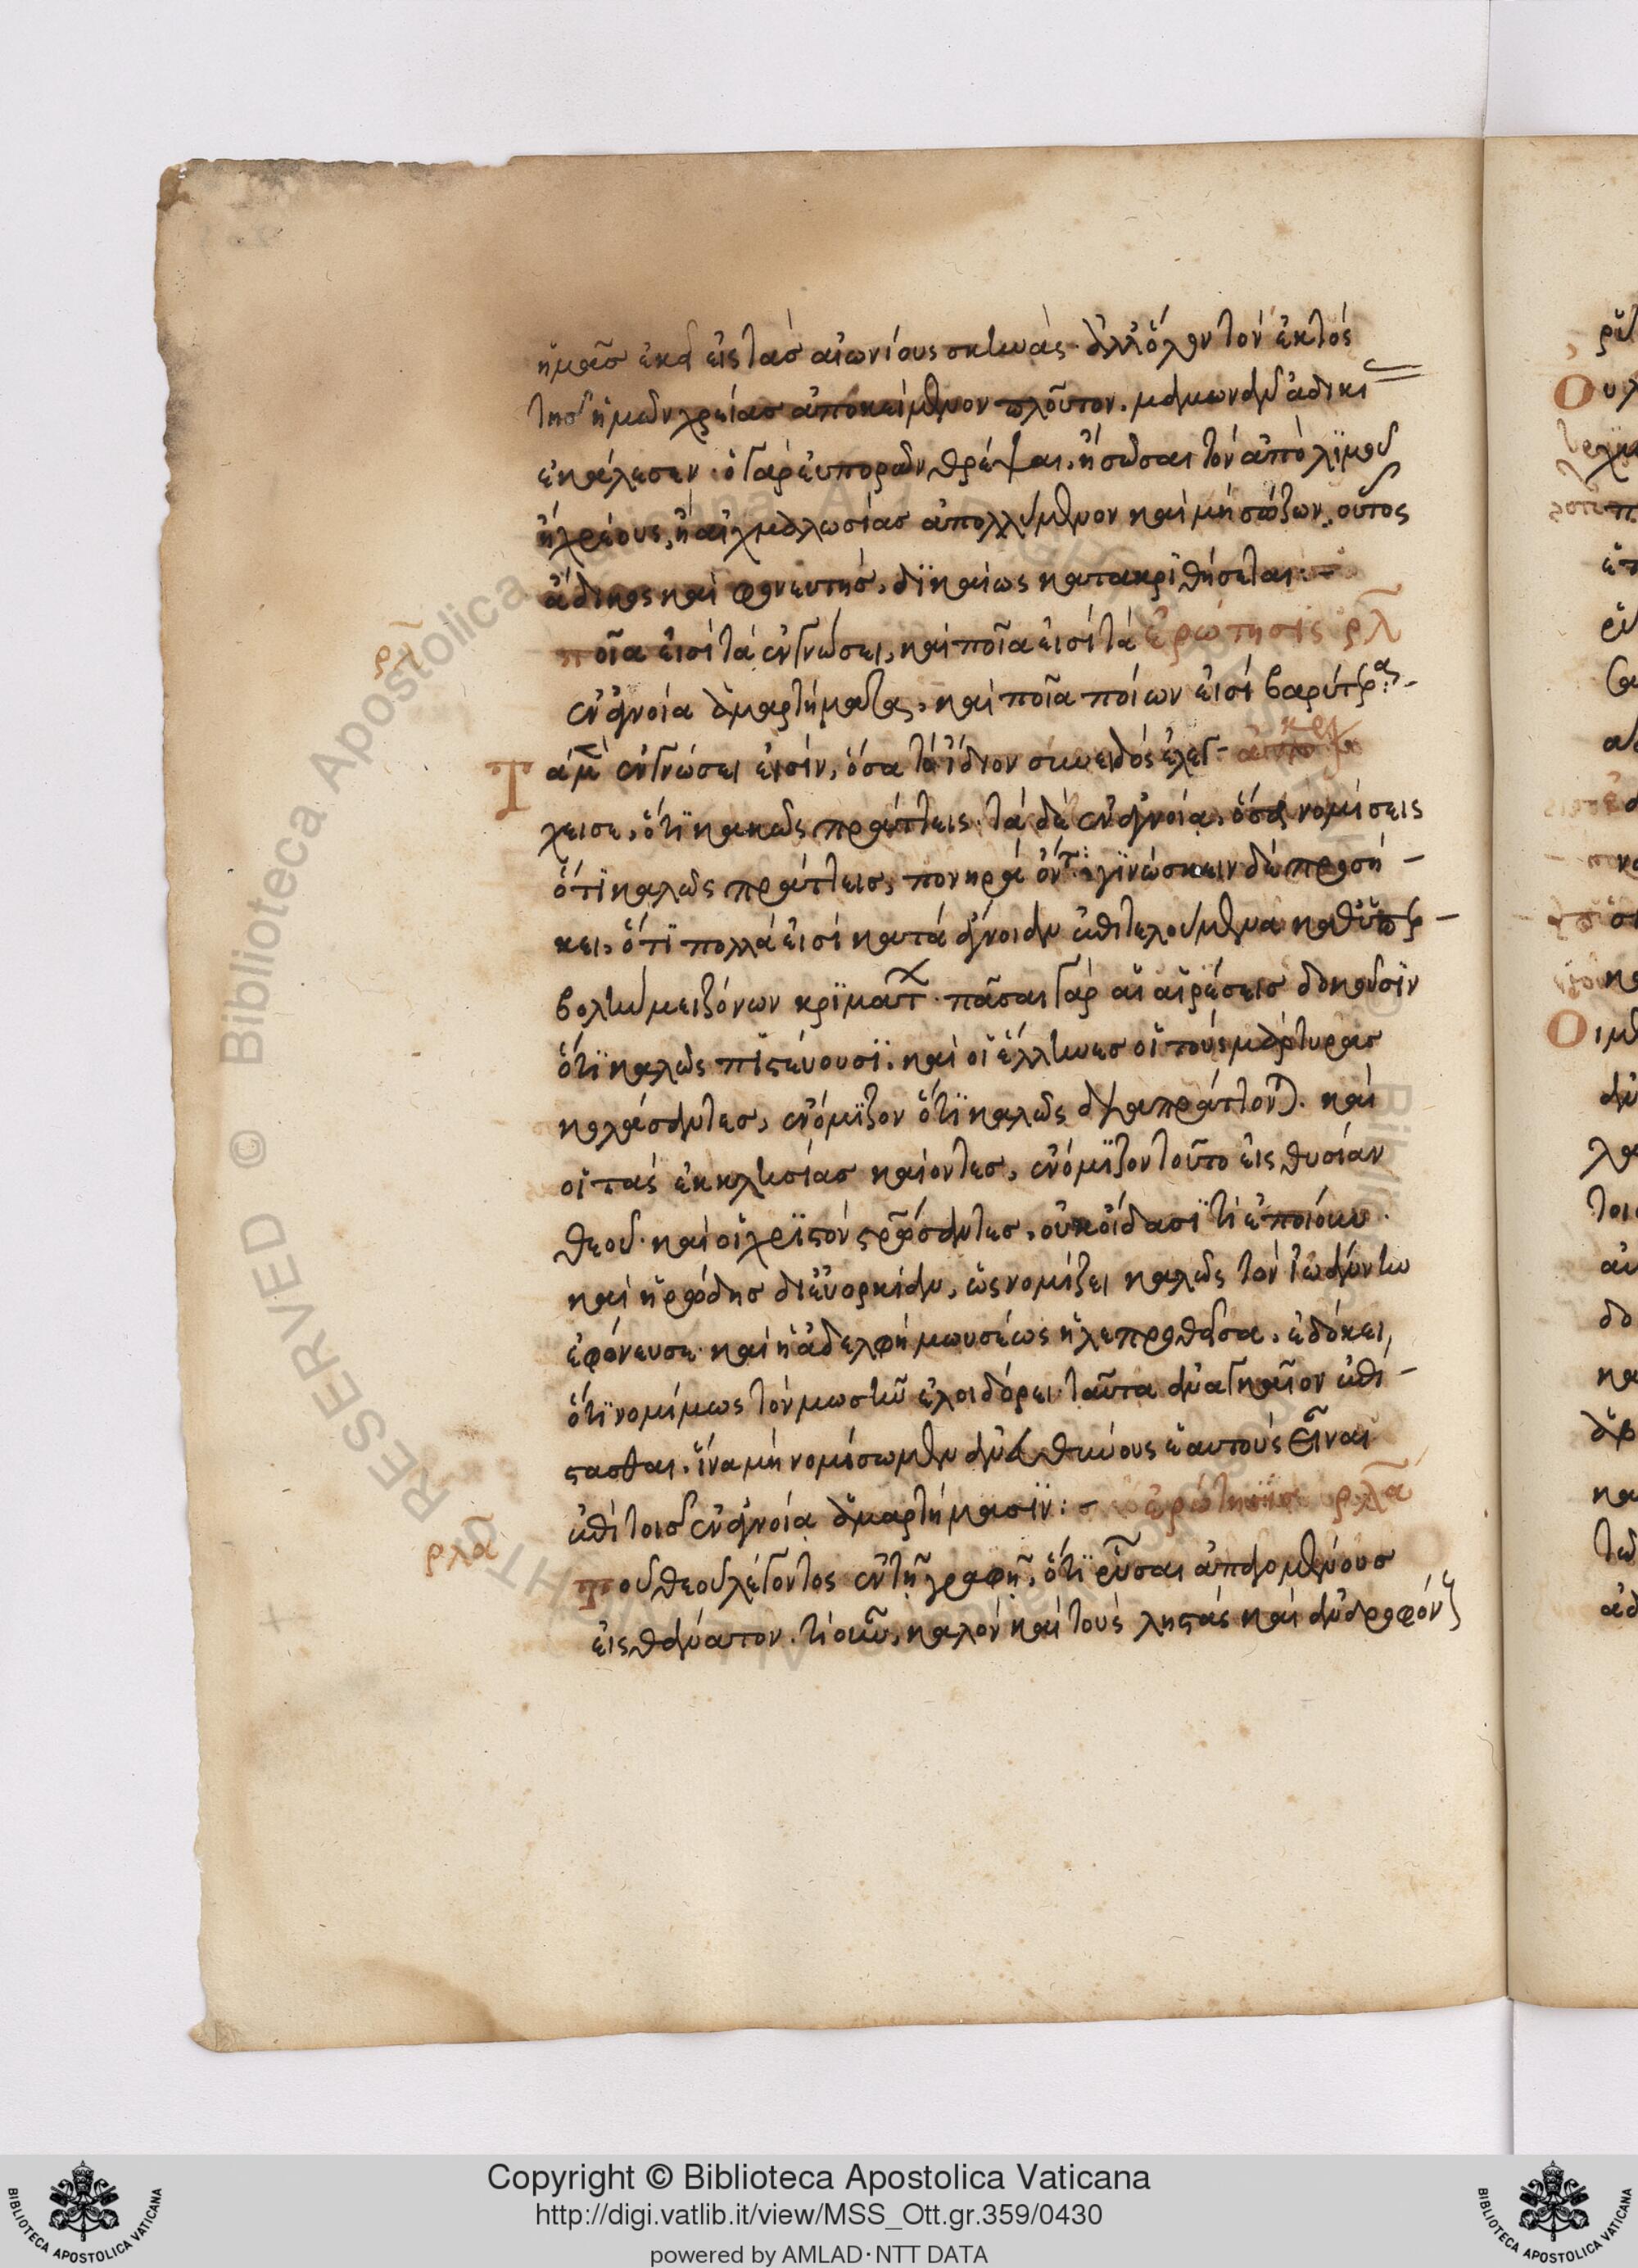 ἡμᾶσ ἐκεῖ εἰς τὰσ αἰωνίους σκηνάς· ἀλλ' ὅλον τὸν ἐκτὸς
τῆσ ἡμῶν χρείασ ἀποκείμενον πλοῦτον. μαμωνὰν ἀδικί
ἐκάλεσεν· ὁ γὰρ εὐπορῶν θρέψαι, ἢ σῶσαι τὸν ἀπὸ λϊμοῦ
ἢ χρέους, ἢ αἰχμαλωσίασ ἀπολλύμενον καὶ μὴ σώζων, οὗτος
ἄδικος καὶ φονευτὴσ, δϊκαίως κατακριθήσεται:-
ρλ
ποῖα εἰσὶ τὰ ἐν γνώσει, καὶ ποῖα εἰσὶ τὰ ἐρώτησις ρλ
ἐν ἀγνοία ἁμαρτήματα, καὶ ποῖα ποίων εἰσὶ βαρύτερα:-
Τὰ μὲν ἐν γνώσει εἰσὶν, ὅσα τὸ ἴδιον συνειδὸς ἐλέγ- ἀπόκρι
χει σε, ὅτϊ κακῶς πράττεις· τὰ δὲ ἐν ἀγνοία, ὅσα νομίσεις
ὅτϊ καλῶς πράττεισ, πονηρὰ ὄντα: γϊνώσκειν δὲ προσή-
κει, ὅτϊ πολλὰ εἰσὶ κατὰ ἄγνοιαν ἐπιτελούμενα καθ' ὑπερ-
βολὴν μειζόνων κρϊμάτων· πᾶσαι γὰρ αἱ αἱρέσεισ δοκοῦσϊν
ὅτϊ καλῶς πϊστεύουσϊ. καὶ οἱ ἕλληνεσ οἱ τοὺς μάρτυρασ
κολάσαντεσ, ἐνόμϊζον ὅτϊ καλῶς διαπράττονται. καὶ
οἱ τὰς ἐκκλησίασ καίοντεσ, ἐνόμϊζον τοῦτο εἰς θυσίαν
θεοῦ· καὶ οἱ χρϊστὸν σταυρώσαντεσ, οὐκ οἴδασϊ τί ἐποίουν.
καὶ ἡρώδησ δι' εὐορκίαν, ὡς νομίζει καλῶς τὸν ἰωάννην
ἐφόνευσε· καὶ ἡ ἀδελφὴ μωυσέως ἡ λεπρωθεῖσα. ἐδόκει,
ὅτϊ νομίμως τὸν μωσὴν ἐλοιδόρει· ταῦτα ἀναγκαῖον ἐπί-
στασθαι. ἵνα μὴ νομίσωμεν ἀνευθύνους ἑαυτοὺς εἶναι
ἐπὶ τοισ ἐν ἀγνοία ἁμαρτήμασϊν:- ἐρώτησϊσ ρλα
ρλα
Τοῦ θεοῦ λέγοντος ἐν τῆ γραφῆ, ὅτϊ ῥῦσαι ἀπαγομένουσ
εἰς θάνατον. τί οὖν, καλὸν καὶ τοὺς ληστὰς καὶ ἀνδροφόν